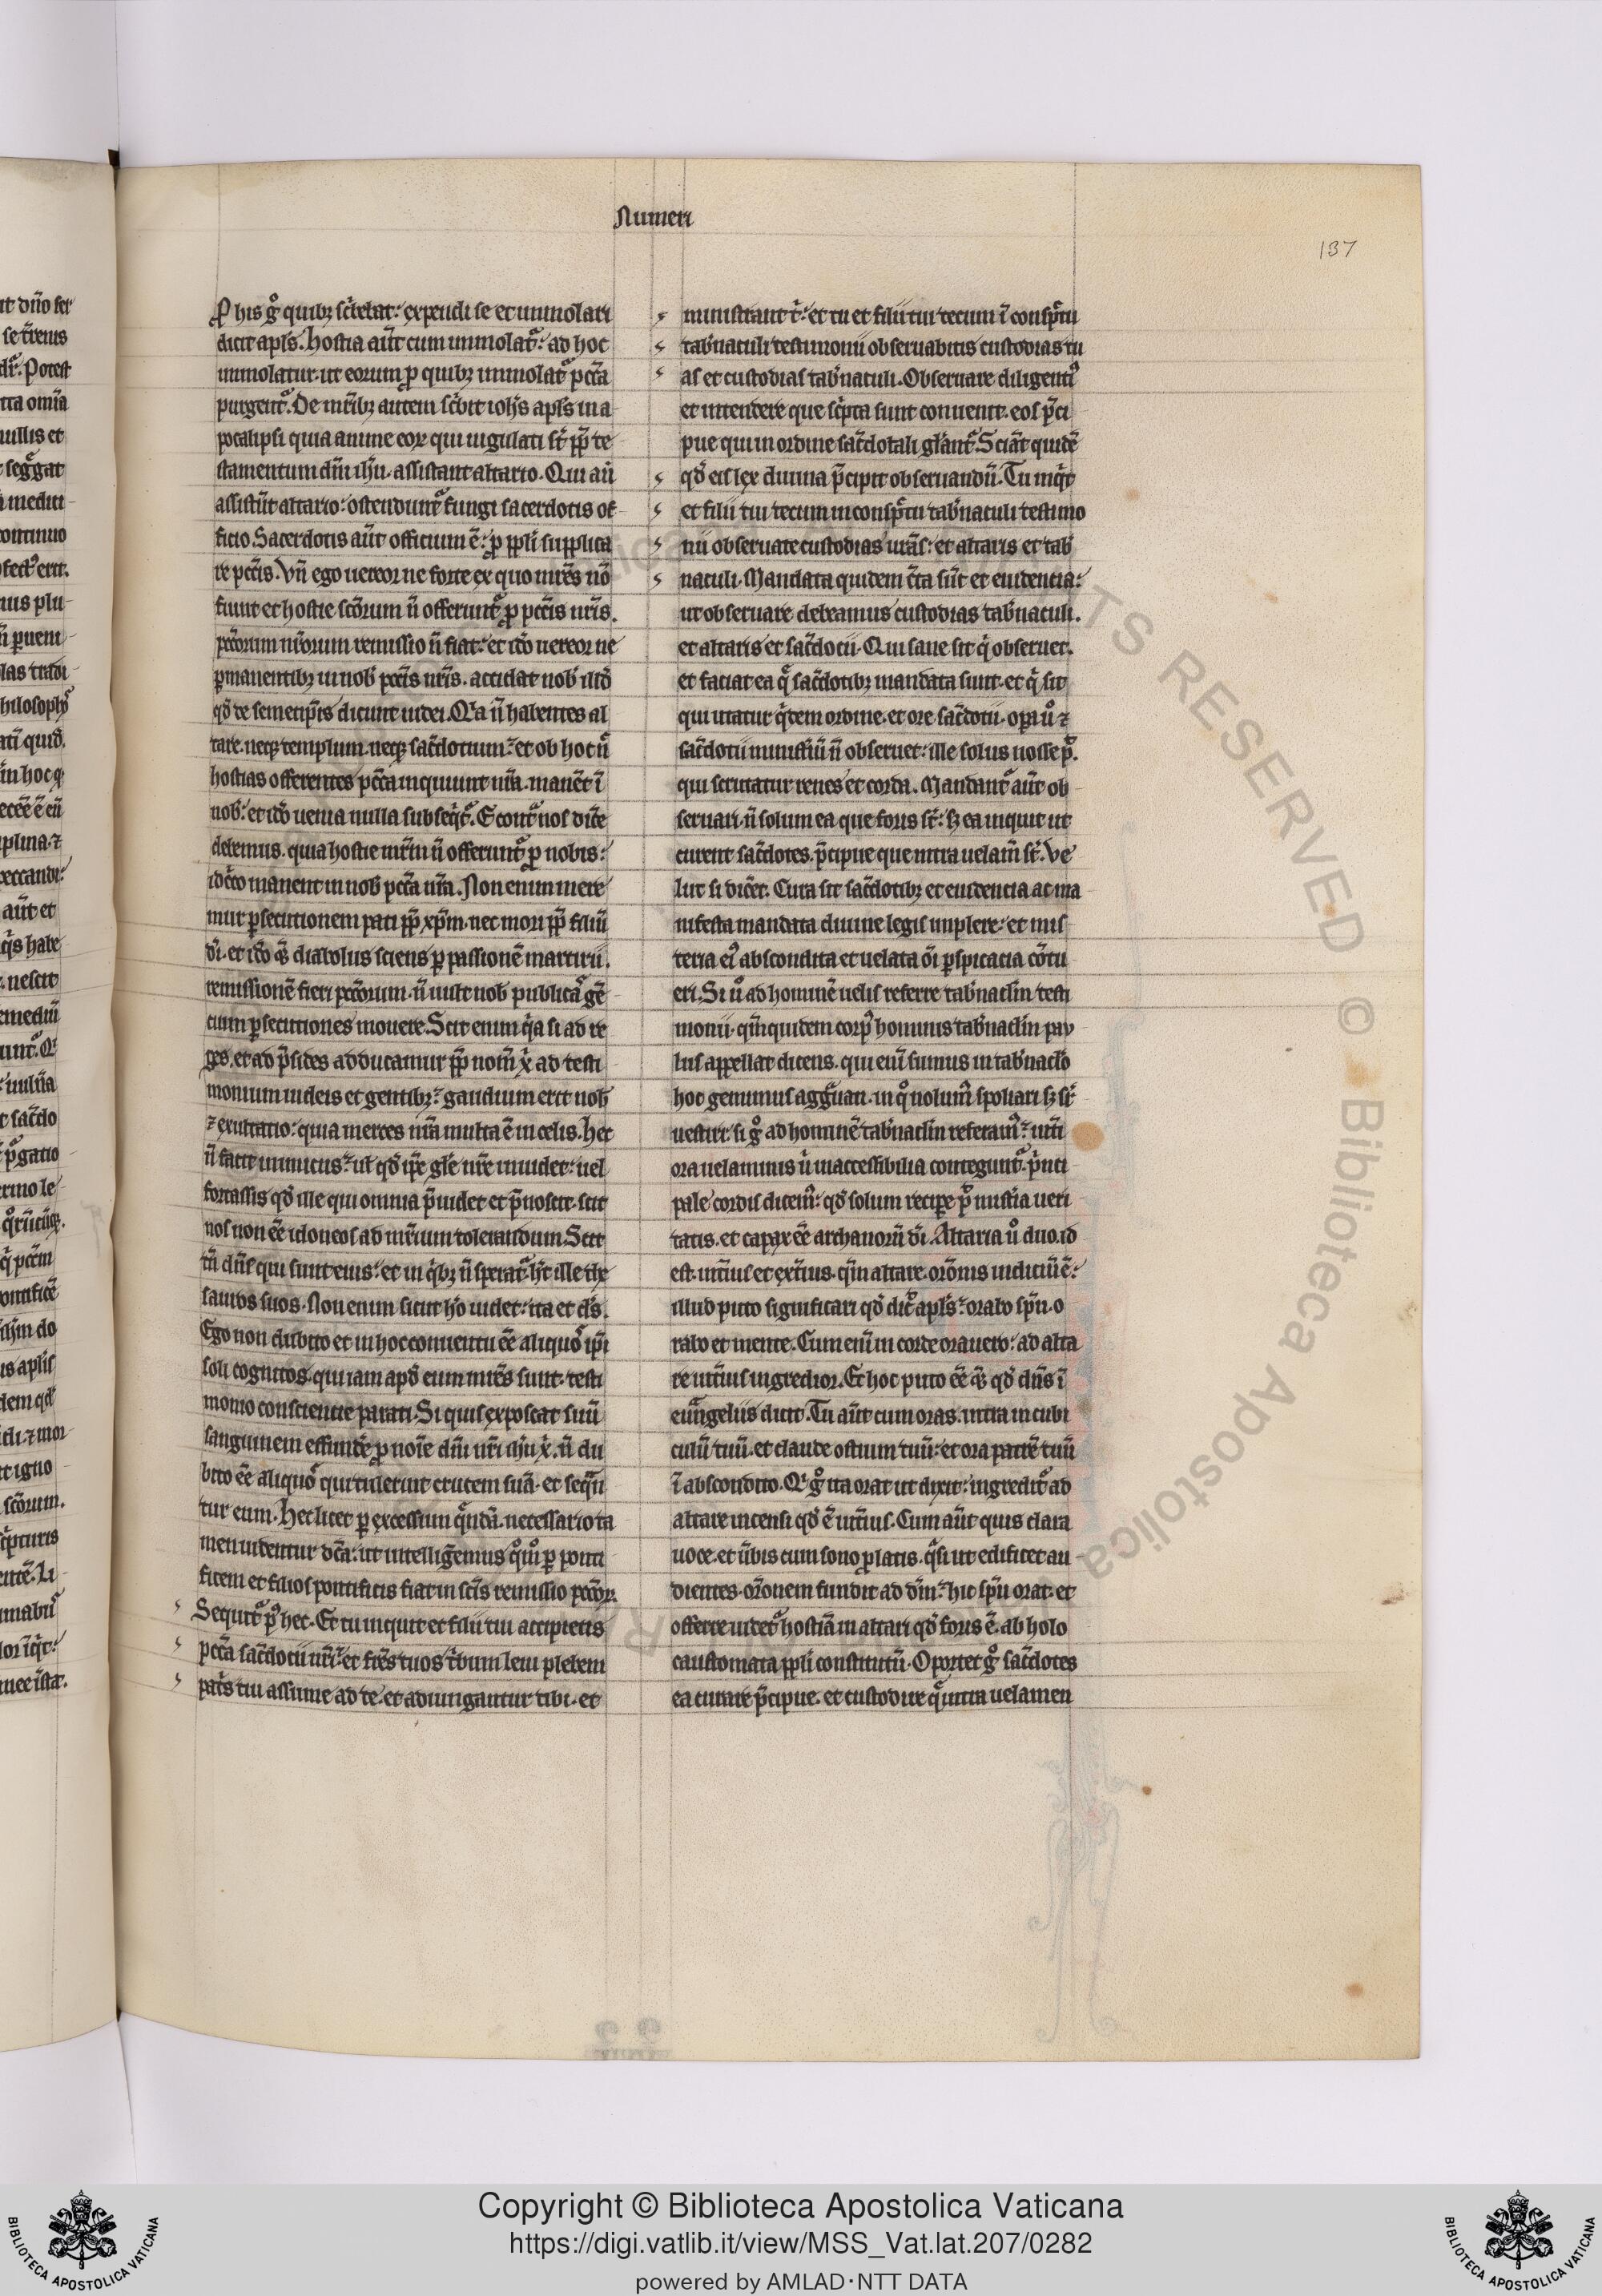 Numeri
137
ꝓ his gͦ quibꝫ sc̄belat: expendi se et immolari
dicit apl̄s. Hostia aūt cum immolat᷑: ad hoc
immolatur. ut eorum ꝓ quibꝫ immolat᷑ pcc̄a
purgent᷑. De mr̄ibꝫ autem sc̄bit ioh̄s apl̄s in a
pocalipsi quia anime eoꝝ qui iugulati st̄ ꝓp̄ te
stamentum dn̄i ih̄u. assistant altario. Qui aū
assistūt altario: ostendunt᷑ fungi sacerdotis of
ficio. Sacerdotis aūt officium ē: ꝓ ppl̄i supplica
re pcc̄is. Vn̄ ego uereor ne forte ex quo mr̄es nō
fiunt et hostie sc̄orum n̄ offerunt᷑ ꝓ pcc̄is nr̄is.
pcc̄orum nr̄orum remissio n̄ fiat: et id̄o uereor ne
ꝑmanentibꝫ in nob̄ pcc̄is nr̄is. accidat nob̄ illd̄
qd̄ de semetip̄is dicunt iudei. Qͥa n̄ habentes al
tare. neqꝫ templum. neqꝫ sac̄dotium: et ob hoc n̄
hostias offerentes pcc̄a inquiunt nr̄a. manēt ī
nob̄: et id̄o uenia nulla subseqͥt᷑. Econt̄ nos dic̄e
debemus. quia hostie mr̄m n̄ offerunt᷑ ꝓ nobis:
idc̄o manent in nob̄ pcc̄a nr̄a. Non enim mere
mur ꝑsecutionem pati ꝓp̄ xp̄m. nec mori ꝓp̄ filiū
dī. et id̄o qͣ diabolus sciens ꝑ passionē martirii.
remissionē fieri pcc̄orum. n̄ uult nob̄ publicͣ gē
cium ꝑsecutiones mouere. Scit enim qͥa si ad re
ges. et ad p̄sides adducamur ꝓp̄ nom̄ x̄ ad testi
monium iudeis et gentibꝫ: gaudium erit nob̄
⁊ exultatio: quia merces nr̄a multa ē in celis. Hec
n̄ facit inimicus: ul̄ qd̄ ip̄e gl̄e nr̄e inuidet: uel
fortassis qd̄ ille qui omnia p̄uidet et p̄noscit. scit
nos non eē idoneos ad mr̄ium tolerandum. Scit
tn̄ dn̄s qui sunt eius: et in qͥbꝫ n̄ sperat᷑. ht̄ ille the
sauros suos. Non enim sicut hō uidet: ita et ds̄.
Ego non dubito et in hoc conuentu eē aliquoͣ ip̄i
soli cognitos. qui iam apd̄ eum mr̄es sunt. testi
monio conscientie parati. Si quis exposcat suū
sanguinem effund̄e ꝓ noīe dn̄i nr̄i ih̄u x̄. n̄ du
bito eē aliquoͣ qui tulerunt crucem suā. et seqūn
tur eum. Hec licet ꝑ excessum qͣndā. necessario ta
men uidentur dc̄a: ut intelliḡemus qͦmͦ ꝑ ponti
ficem et filios pontificis fiat in sc̄is remissio pcc̄oꝝ.
Sequit᷑ pꝰ hec. Et tu inquit et filii tui accipietis
pcc̄a sac̄dotii ur̄i: et fr̄es tuos tͥbum leui plebem
pat̄s tui assume ad te. et adiungantur tibi. et
ministrant t̄: et tu et filii tui tecum ī consp̄ctu
tab̄naculi testimonii obseruabitis custodias tu
as et custodias tab̄naculi. Obseruare diligentiꝰ
et intendere que sc̄pta sunt conuenit. eos p̄ci
pue qui in ordine sac̄dotali gl̄ant᷑. Sciāt quidē
qd̄ eis lex diuina p̄cipit obseruandū. Tu inqͥt
et filii tui tecum in consp̄ctu tab̄naculi testimo
nii obseruate custodias ur̄as: et altaris et tab̄
naculi. Mandata quidem c̄ta sūt et euidentia:
ut obseruare debeamus custodias tab̄naculi.
et altaris et sac̄dotii. Qui sane sit qͥ obseruet.
et faciat ea qͣ sac̄dotibꝫ mandata sunt. et qͥ sit
qui utatur qͥdem ordine. et ore sac̄dotii. oꝑa uͦ ⁊
sac̄dotii ministiū n̄ obseruet: ille solus nosse pͦ.
qui scrutatur renes et corda. Mandant᷑ aūt ob
seruari. n̄ solum ea que foris st̄: sꝫ ea inquit ut
curent sac̄dotes. p̄cipue que intra uelam̄ st̄. Ve
lut si dic̄et. Cura sit sac̄dotibꝫ et euidencia ac ma
nifesta mandata diuine legis implere: et mis
teria eiꝰ abscondita et uelata oī ꝑspicacia cōtu
eri. Si uͦ ad hominē uelis referre tab̄naclm̄ testi
monii. qm̄quidem corpꝰ hominis tab̄naclm̄ pau
lus appellat dicens. qui enī sumus in tab̄naclō
hoc gemimus agg̃uati. in qͦ nolumꝰ spoliari sꝫ suꝑ
uestiri: si gͦ ad hominē tab̄naclm̄ referamꝰ: intī
ora uelaminis ū inaccessibilia contegunt᷑. pͥnci
pale cordis dicemꝰ: qd̄ solum recipe pͦ mist̄ia ueri
tatis. et capax eē archanorū dī. Altaria uͦ duo. id
est. int̄ius et ext̄ius. qm̄ altare. orōnis indiciū ē:
illud puto significari qd̄ dic̄ apl̄s: orabo sp̄u. o
rabo et mente. Cum enī in corde orauero: ad alta
re int̄ius ingredior. Et hoc puto eē qͣ qd̄ dn̄s ī
euūngeliis dicit. Tu aūt cum oras. intra in cubi
culū tuū. et claude ostium tuū: et ora patrē tuū
ī abscondito. Qͥ gͦ ita orat ut dixit: ingredit᷑ ad
altare incensi qd̄ ē int̄ius. Cum aūt quis clara
uoce. et ūbis cum sono ꝓlatis. qͣsi ut edificet au
dientes. orōnem fundit ad dn̄m: hic sp̄u orat. et
offerre uidet᷑ hostiā in altari qd̄ foris ē. ab holo
caustomata ppl̄i constitutū. Oportet gͦ sac̄dotes
ea curare p̄cipue. et custodire qͣ intra uelamen
Copyright © Biblioteca Apostolica Vaticana
https://digi.vatlib.it/view/MSS_Vat.lat.207/0282
powered by AMLAD·NTT DATA